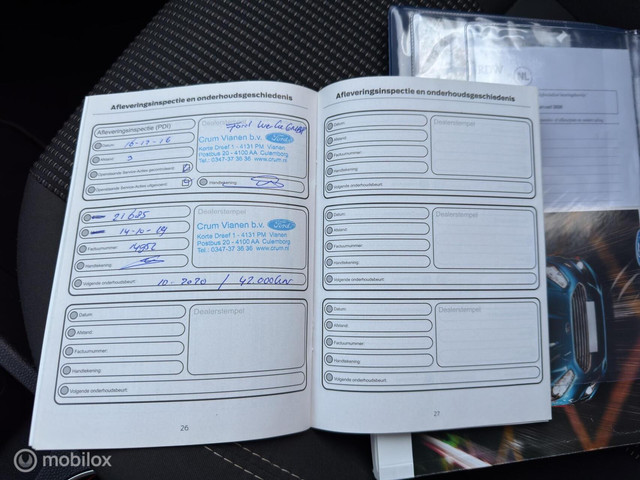 Afleveringsinspectie en onderhoudsgeschiedenis
Afleveringsinspectie (PDI)
Datum: 
Afstand: 3
Handtekening:
Dealerstempel
Crum Vianen b.v. Ford
Korte Dreef 1 - 4131 PM Vianen
Postbus 20 - 4100 AA Culemborg
Tel.: 0347-37 36 36 www.crum.nl
21685
14-10-19
Factuurnummer: 14952
Handtekening:
Volgende onderhoudsbeurt: 10-2020 / 42.000km
Dealerstempel
Crum Vianen b.v. Ford
Korte Dreef 1 - 4131 PM Vianen
Postbus 20 - 4100 AA Culemborg
Tel.: 0347-37 36 36 www.crum.nl
Datum:
Afstand:
Factuurnummer:
Handtekening:
Volgende onderhoudsbeurt:
Dealerstempel
26
Afleveringsinspectie en onderhoudsgeschiedenis
Datum:
Afstand:
Factuurnummer:
Handtekening:
Volgende onderhoudsbeurt:
Dealerstempel
Datum:
Afstand:
Factuurnummer:
Handtekening:
Volgende onderhoudsbeurt:
Dealerstempel
Datum:
Afstand:
Factuurnummer:
Handtekening:
Volgende onderhoudsbeurt:
Dealerstempel
27
NL
mobilox